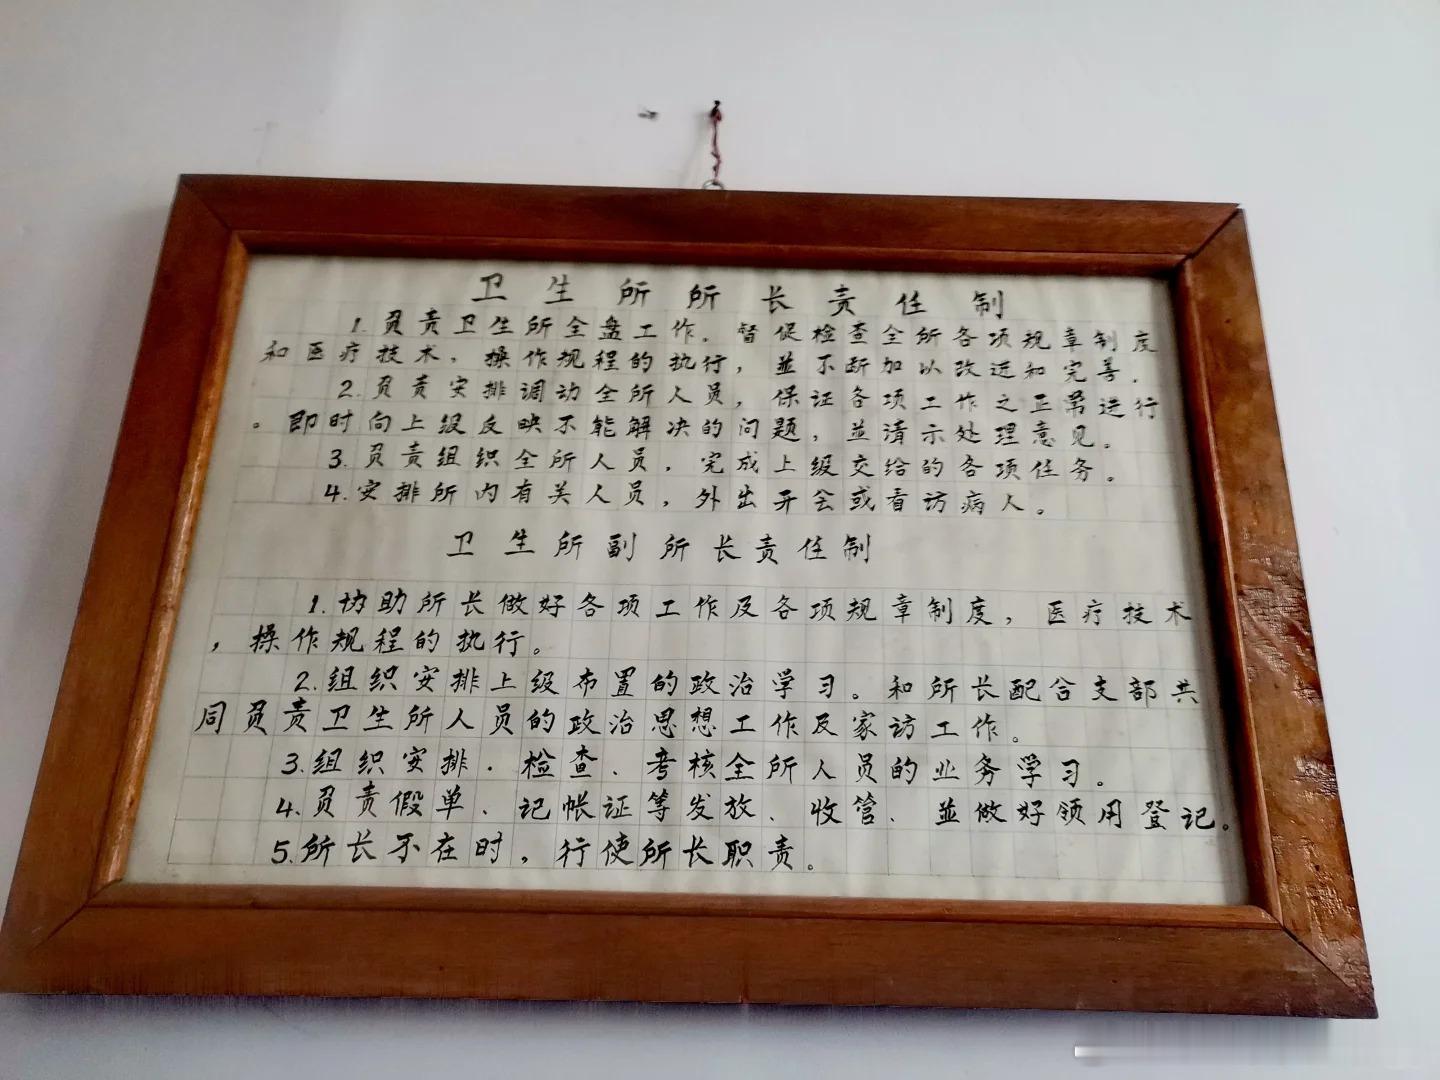 卫生所所长责任制
1.负责卫生所全盘工作。督促检查全所各项规章制度
和医疗技术，操作规程的执行，並不断加以改进和完善.
2.负责安排调动全所人员，保证各项工作之正常进行
。即时向上级反映不能解决的问题，並请示处理意见。
3.负责组织全所人员，完成上级交给的各项任务。
4.安排所内有关人员，外出开会或看访病人。
卫生所副所长责任制
1.协助所长做好各项工作及各项规章制度，医疗技术
，操作规程的执行。
2.组织安排上级布置的政治学习。和所长配合支部共
同负责卫生所人员的政治思想工作及家访工作。
3.组织安排.检查、考核全所人员的业务学习。
4.负责假单、记帐证等发放、收管、並做好领用登记。
5.所长不在时，行使所长职责。